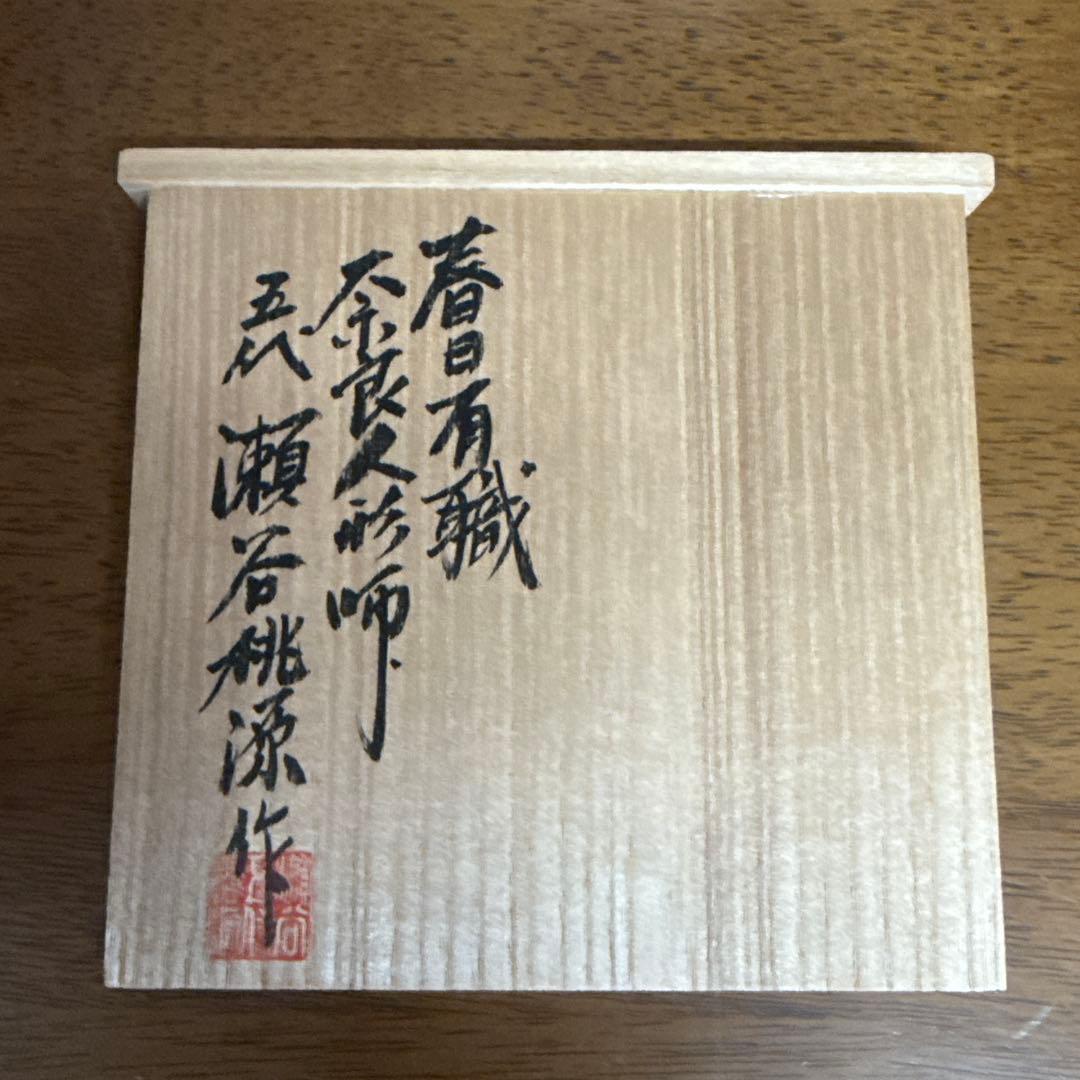 春日有職
奈良人形師
五代 瀬谷桃源作